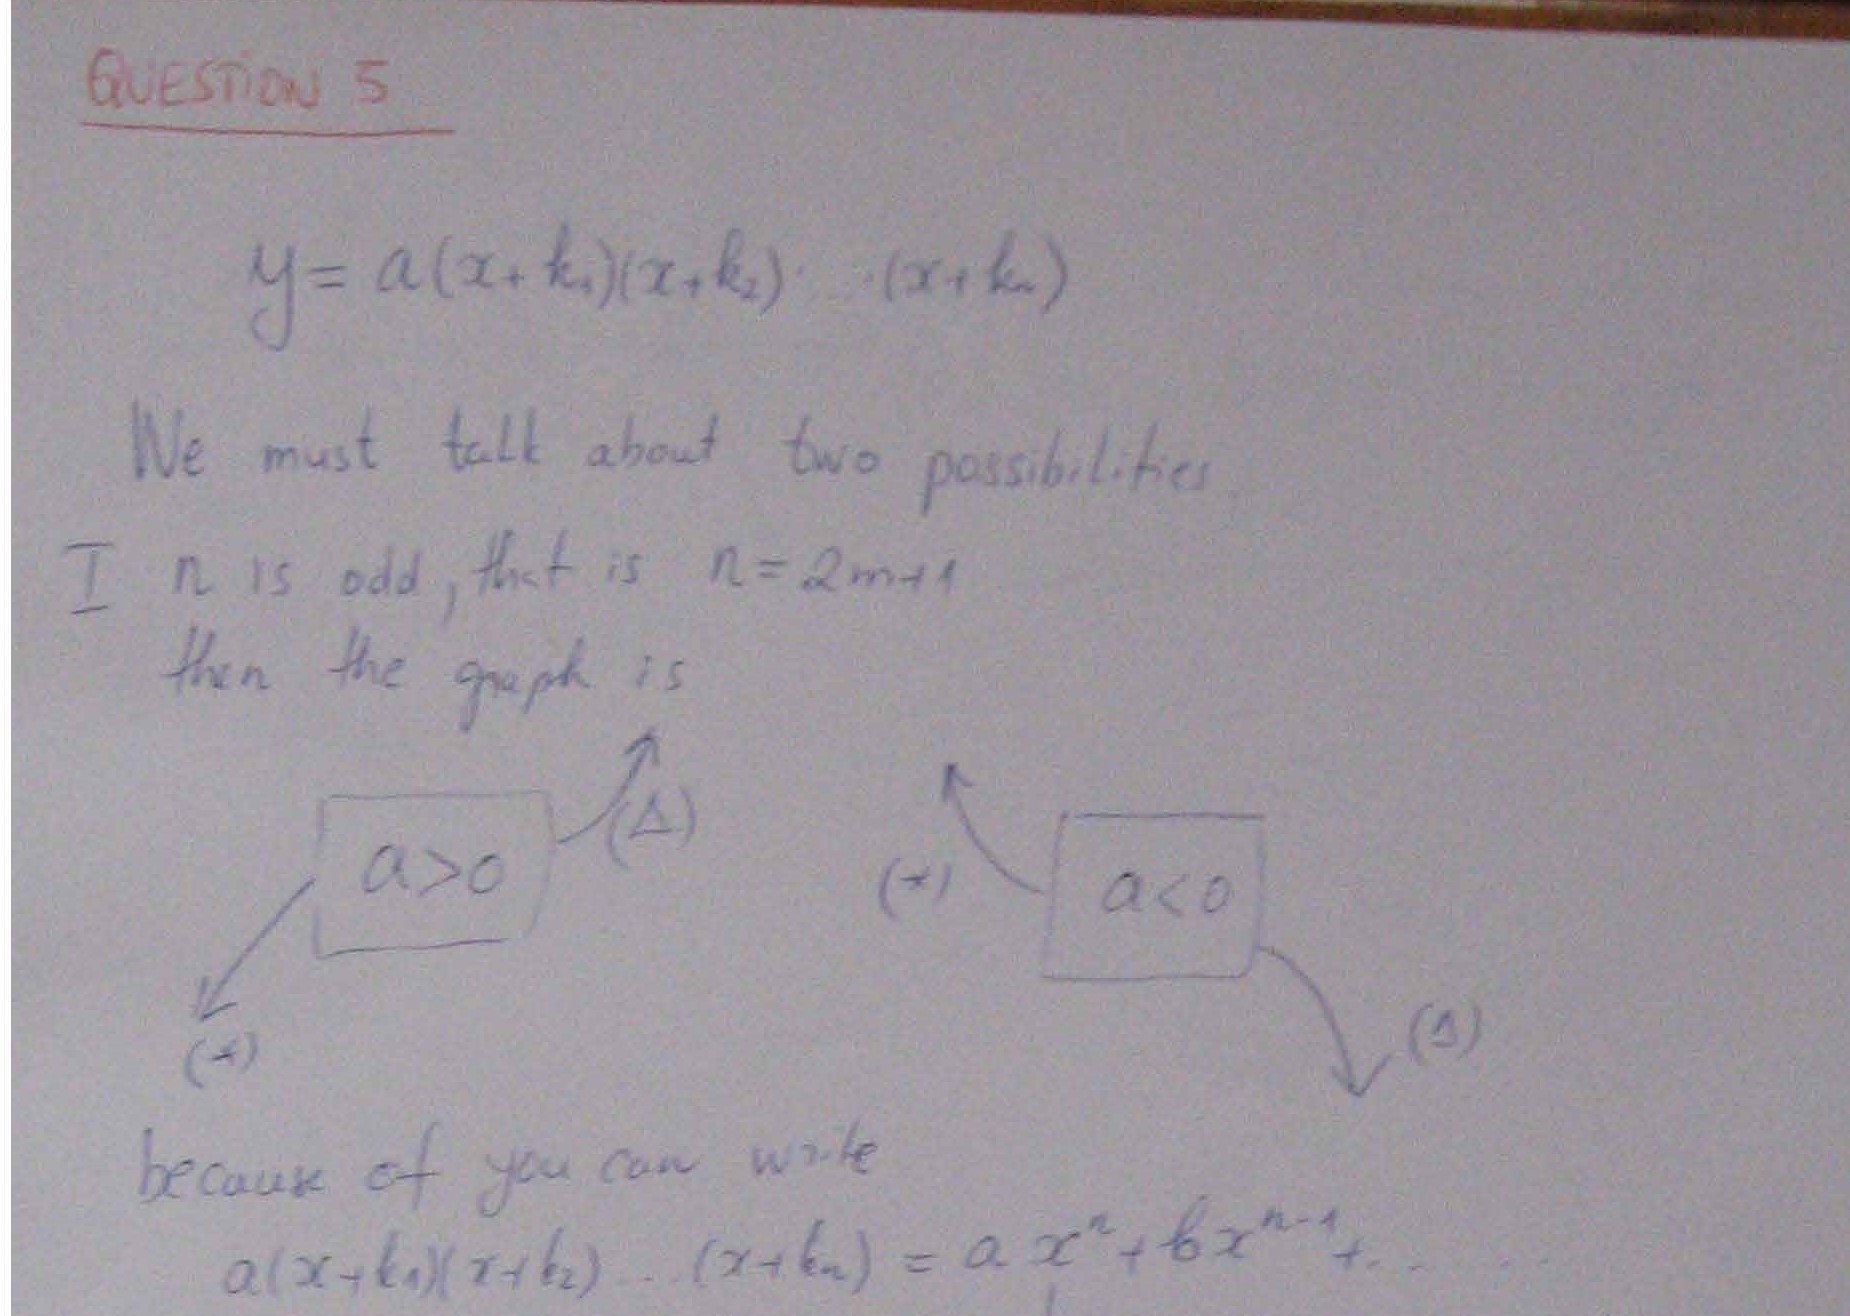 QUESTION 5
y = a(x+k₁)(x+k₂)· ··(x+kₙ)
We must talk about two possibilities.
I n is odd, that is n = 2m+1
then the graph is
a>0 (Δ)
(*)
(*) a<0
(Δ)
because of you can write
a(x+k₁)(x+k₂)...(x+kₙ) = a xⁿ + bxⁿ⁻¹+.. ..